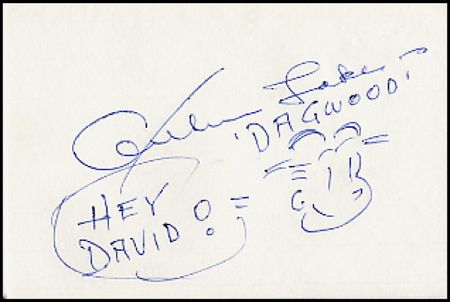 Arthur Lake
'DAGWOOD'
HEY
DAVID!